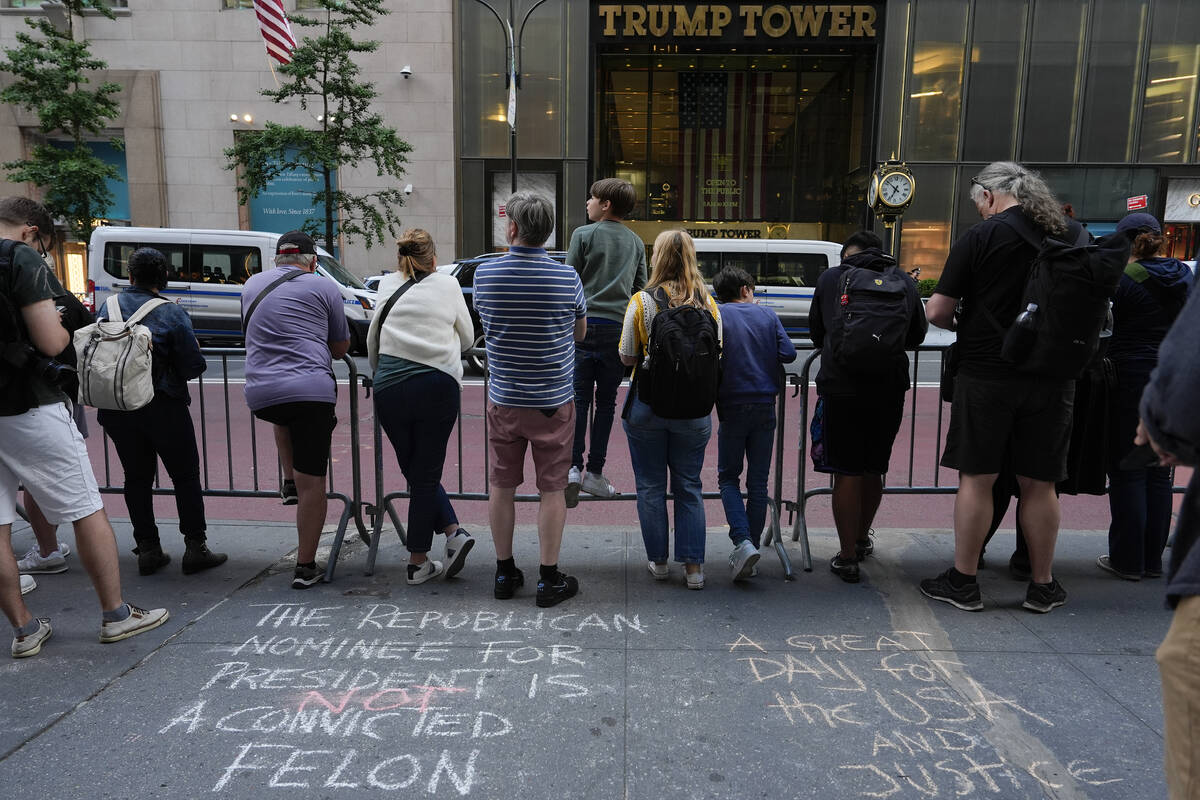 TRUMP TOWER
OPEN TO
THE PUBLIC
8AM to 10PM
TRUMP TOWER
With love, Since 1837
1837
POLICE
PUMA
THE REPUBLICAN
NOMINEE FOR
PRESIDENT IS
NOT
A CONVICTED
FELON
A GREAT
DAY FOR
THE USA
AND
JUSTICE